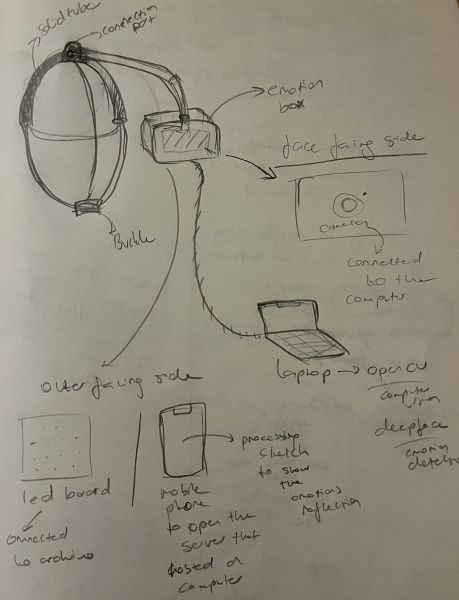 solid tube
connection
part
emotion
box
face facing side
camera
connected
to the
computer
Buckle
laptop → open cv
computer
vision
deepface
emotion
detection
outer facing side
led board
connected
to arduino
mobile
phone
to open the
server that
hosted on
computer
processing
sketch
to show
the
emotions
reflection